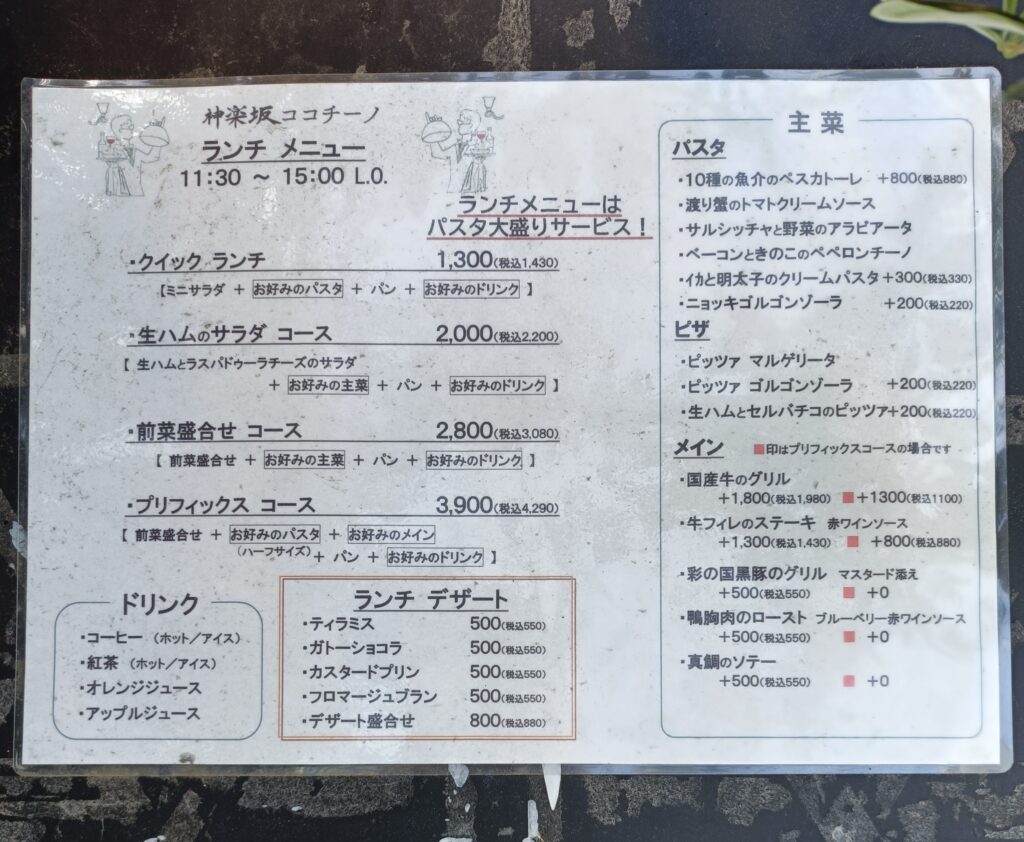 神楽坂ココチーノ
ランチ メニュー
11:30 ～ 15:00 L.O.
ランチメニューは
パスタ大盛りサービス！
・クイック ランチ 1,300(税込1,430)
【ミニサラダ ＋ お好みのパスタ ＋ パン ＋ お好みのドリンク 】
・生ハムのサラダ コース 2,000(税込2,200)
【 生ハムとラスパドゥーラチーズのサラダ
＋ お好みの主菜 ＋ パン ＋ お好みのドリンク 】
・前菜盛合せ コース 2,800(税込3,080)
【 前菜盛合せ ＋ お好みの主菜 ＋ パン ＋ お好みのドリンク 】
・プリフィックス コース 3,900(税込4,290)
【 前菜盛合せ ＋ お好みのパスタ ＋ お好みのメイン
(ハーフサイズ) ＋ パン ＋ お好みのドリンク 】
ドリンク
・コーヒー （ホット／アイス）
・紅茶 （ホット／アイス）
・オレンジジュース
・アップルジュース
ランチ デザート
・ティラミス 500(税込550)
・ガトーショコラ 500(税込550)
・カスタードプリン 500(税込550)
・フロマージュブラン 500(税込550)
・デザート盛合せ 800(税込880)
主菜
パスタ
・10種の魚介のペスカトーレ ＋800(税込880)
・渡り蟹のトマトクリームソース
・サルシッチャと野菜のアラビアータ
・ベーコンときのこのペペロンチーノ
・イカと明太子のクリームパスタ＋300(税込330)
・ニョッキゴルゴンゾーラ ＋200(税込220)
ピザ
・ピッツァ マルゲリータ
・ピッツァ ゴルゴンゾーラ ＋200(税込220)
・生ハムとセルバチコのピッツァ＋200(税込220)
メイン ■印はプリフィックスコースの場合です
・国産牛のグリル
＋1,800(税込1,980) ■ ＋1300(税込1100)
・牛フィレのステーキ 赤ワインソース
＋1,300(税込1,430) ■ ＋800(税込880)
・彩の国黒豚のグリル マスタード添え
＋500(税込550) ■ ＋0
・鴨胸肉のロースト ブルーベリー赤ワインソース
＋500(税込550) ■ ＋0
・真鯛のソテー
＋500(税込550) ■ ＋0